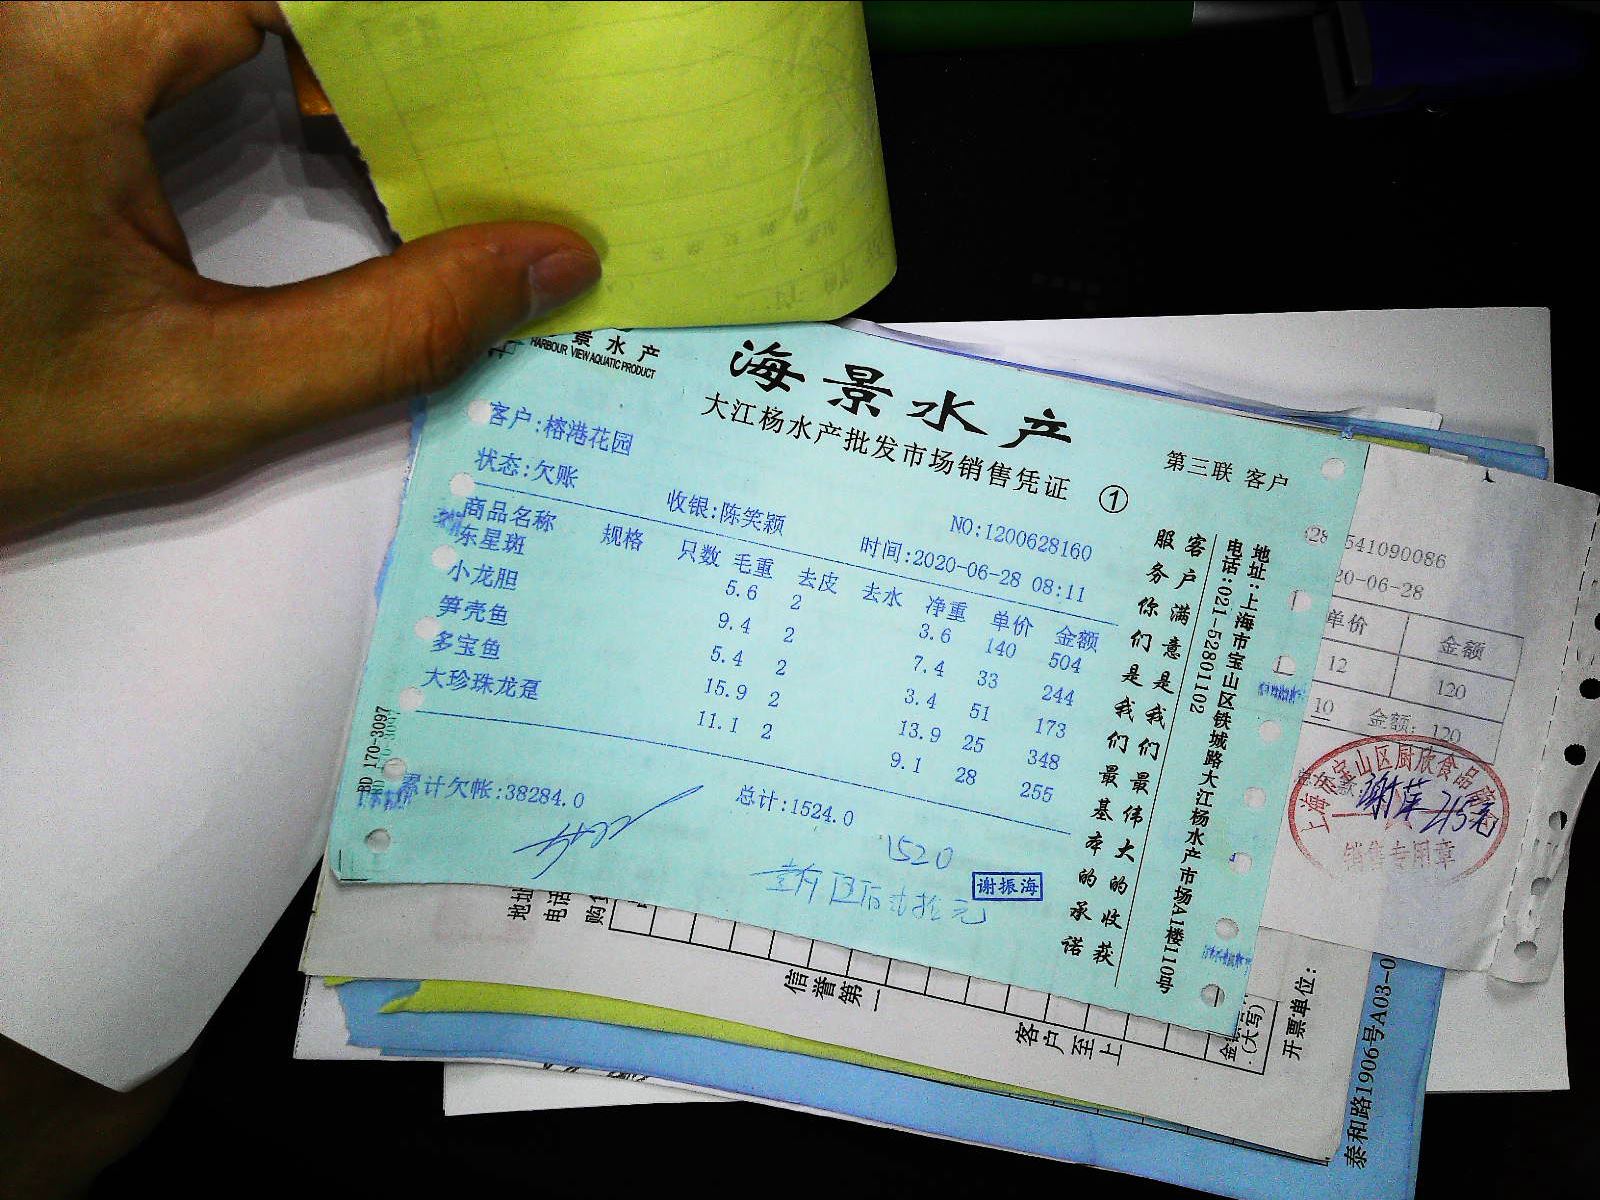 景水产
HARBOUR VIEW AQUATIC PRODUCT
海景水产
大江杨水产批发市场销售凭证 ①
第三联 客户
客户:榕港花园
状态:欠账
收银:陈笑颖
NO:1200628160
时间:2020-06-28 08:11
商品名称 规格 只数 毛重 去皮 去水 净重 单价 金额
东星斑 5.6 2 3.6 140 504
小龙胆 9.4 2 7.4 33 244
笋壳鱼 5.4 2 3.4 51 173
多宝鱼 15.9 2 13.9 25 348
大珍珠龙趸 11.1 2 9.1 28 255
累计欠帐:38284.0
总计:1524.0
1520
谢振海
BD 170-3097
客户满意是我们最大的收获
服务你们是我们最基本的承诺
地址:上海市宝山区铁城路大江杨水产市场A1楼110号
电话:021-52801102
541090086
20-06-28
单价 金额
12 120
10 金额: 120
宝山区厨欣食品
销售专用章
地址
电话
购
信誉第一
客户至上
(大写)
开票单位:
泰和路1906号A03-0